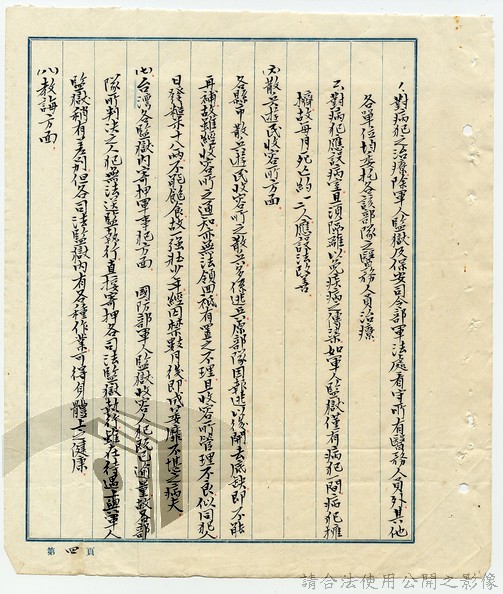 1.對病犯之治療除軍人監獄及保安司令部軍法處看守所有醫務人員外其他
各單位均委托各該部隊之醫務人員治療
2.對病犯應設病室且須隔離以免疾病之傳染如軍人監獄僅有病犯一間病犯擁
擠故每月死亡約一二人應設法改善
(六)散兵遊民收容所方面
各縣市散兵遊民收容所之散兵多係逃兵原部隊因報逃以後開去底缺即不能
再補故雖經收容所之通知亦無法領回祇有置之不理且收容所管理不良似同犯人
日發糙米十八兩不能飽食故一強壯少年經因禁數月後即成萎靡不堪之病夫
(七)台灣各監獄內寄押軍事犯方面 國防部軍人監獄收容人犯既已逾量故各部
隊所判決之人犯無法送監執行直接寄押各司法監獄執行雖在待遇上與軍人
監獄稍有差別但各司法監獄內有各種作業可得身體上之健康
(八)教誨方面
第四頁
請合法使用公開之影像